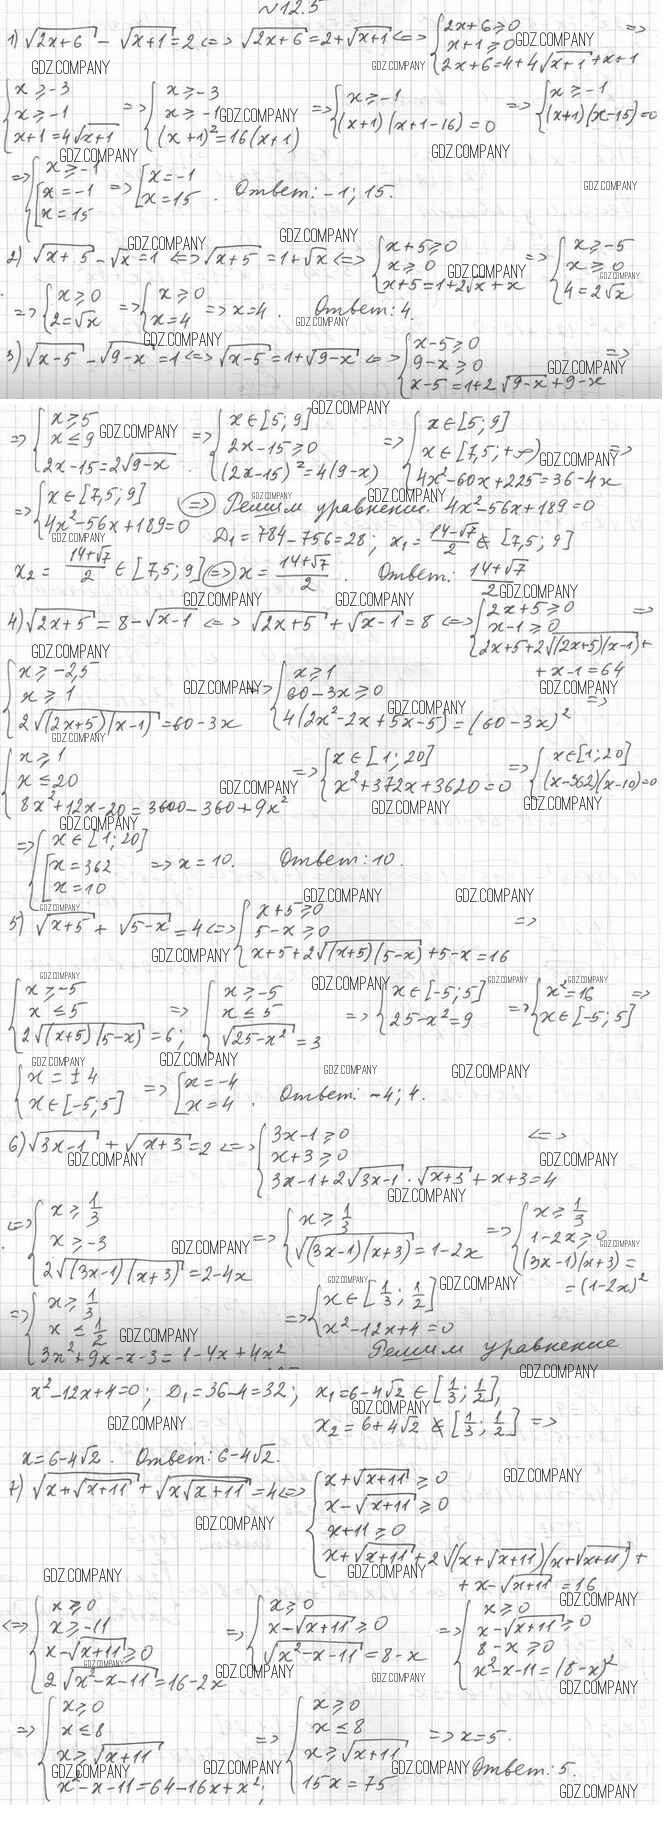 №12.5
1) √(2x+6) − √(x+1) = 2 <=> √(2x+6) = 2+√(x+1) <=> { 2x+6 ⩾ 0; x+1 ⩾ 0; 2x+6 = 4+4√(x+1) + x+1 =>
{ x ⩾ −3; x ⩾ −1; x+1 = 4√(x+1) => { x ⩾ −3; x ⩾ −1; (x+1)² = 16(x+1) => { x ⩾ −1; (x+1)(x+1−16) = 0 => { x ⩾ −1; (x+1)(x−15) = 0
=> { x ⩾ −1; [ x = −1; x = 15 => [ x = −1; x = 15 . Ответ: −1; 15.
2) √(x+5) − √x = 1 <=> √(x+5) = 1+√x <=> { x+5 ⩾ 0; x ⩾ 0; x+5 = 1+2√x + x => { x ⩾ −5; x ⩾ 0; 4 = 2√x
=> { x ⩾ 0; 2 = √x => { x ⩾ 0; x = 4 => x = 4 . Ответ: 4.
3) √(x−5) − √(9−x) = 1 <=> √(x−5) = 1+√(9−x) <=> { x−5 ⩾ 0; 9−x ⩾ 0; x−5 = 1+2√(9−x) + 9−x =>
=> { x ⩾ 5; x ⩽ 9; 2x−15 = 2√(9−x) => { x ∈ [5; 9]; 2x−15 ⩾ 0; (2x−15)² = 4(9−x) => { x ∈ [5; 9]; x ∈ [7,5; +∞); 4x²−60x+225 = 36−4x =>
=> { x ∈ [7,5; 9]; 4x²−56x+189 = 0 => Решим уравнение. 4x²−56x+189 = 0
D₁ = 784−756 = 28; x₁ = (14−√7)/2 ∉ [7,5; 9]
x₂ = (14+√7)/2 ∈ [7,5; 9] => x = (14+√7)/2 . Ответ: (14+√7)/2
4) √(2x+5) = 8−√(x−1) <=> √(2x+5) + √(x−1) = 8 <=> { 2x+5 ⩾ 0; x−1 ⩾ 0; 2x+5+2√((2x+5)(x−1)) + + x−1 = 64 =>
{ x ⩾ −2,5; x ⩾ 1; 2√((2x+5)(x−1)) = 60−3x => { x ⩾ 1; 60−3x ⩾ 0; 4(2x²−2x+5x−5) = (60−3x)² =>
{ x ⩾ 1; x ⩽ 20; 8x²+12x−20 = 3600−360+9x² => { x ∈ [1; 20]; x²+372x+3620 = 0 => { x ∈ [1; 20]; (x−362)(x−10) = 0
=> { x ∈ [1; 20]; [ x = 362; x = 10 => x = 10. Ответ: 10.
5) √(x+5) + √(5−x) = 4 <=> { x+5 ⩾ 0; 5−x ⩾ 0; x+5+2√((x+5)(5−x)) + 5−x = 16 =>
{ x ⩾ −5; x ⩽ 5; 2√((x+5)(5−x)) = 6; => { x ⩾ −5; x ⩽ 5; √(25−x²) = 3 => { x ∈ [−5; 5]; 25−x² = 9 => { x² = 16; x ∈ [−5; 5] =>
{ x = ±4; x ∈ [−5; 5] => [ x = −4; x = 4 . Ответ: −4; 4.
6) √(3x−1) + √(x+3) = 2 <=> { 3x−1 ⩾ 0; x+3 ⩾ 0; 3x−1+2√(3x−1) · √(x+3) + x+3 = 4 <=>
<=> { x ⩾ 1/3; x ⩾ −3; 2√((3x−1)(x+3)) = 2−4x => { x ⩾ 1/3; √((3x−1)(x+3)) = 1−2x => { x ⩾ 1/3; 1−2x ⩾ 0; (3x−1)(x+3) = = (1−2x)²
=> { x ⩾ 1/3; x ⩽ 1/2; 3x²+9x−x−3 = 1−4x+4x² => { x ∈ [1/3; 1/2]; x²−12x+4 = 0 Решим уравнение
x²−12x+4 = 0; D₁ = 36−4 = 32; x₁ = 6−4√2 ∈ [1/3; 1/2],
x₂ = 6+4√2 ∉ [1/3; 1/2] =>
x = 6−4√2. Ответ: 6−4√2.
7) √(x+√(x+11)) + √(x√(x+11)) = 4 <=> { x+√(x+11) ⩾ 0; x−√(x+11) ⩾ 0; x+11 ⩾ 0; x+√(x+11) + 2√((x+√(x+11))(x+√(x+11))) + + x−√(x+11) = 16
<=> { x ⩾ 0; x ⩾ −11; x−√(x+11) ⩾ 0; 2√(x²−x−11) = 16−2x => { x ⩾ 0; x−√(x+11) ⩾ 0; √(x²−x−11) = 8−x => { x ⩾ 0; x−√(x+11) ⩾ 0; 8−x ⩾ 0; x²−x−11 = (8−x)²
=> { x ⩾ 0; x ⩽ 8; x ⩾ √(x+11); x²−x−11 = 64−16x+x²; => { x ⩾ 0; x ⩽ 8; x ⩾ √(x+11); 15x = 75 => x = 5.
Ответ: 5.
GDZ.COMPANY